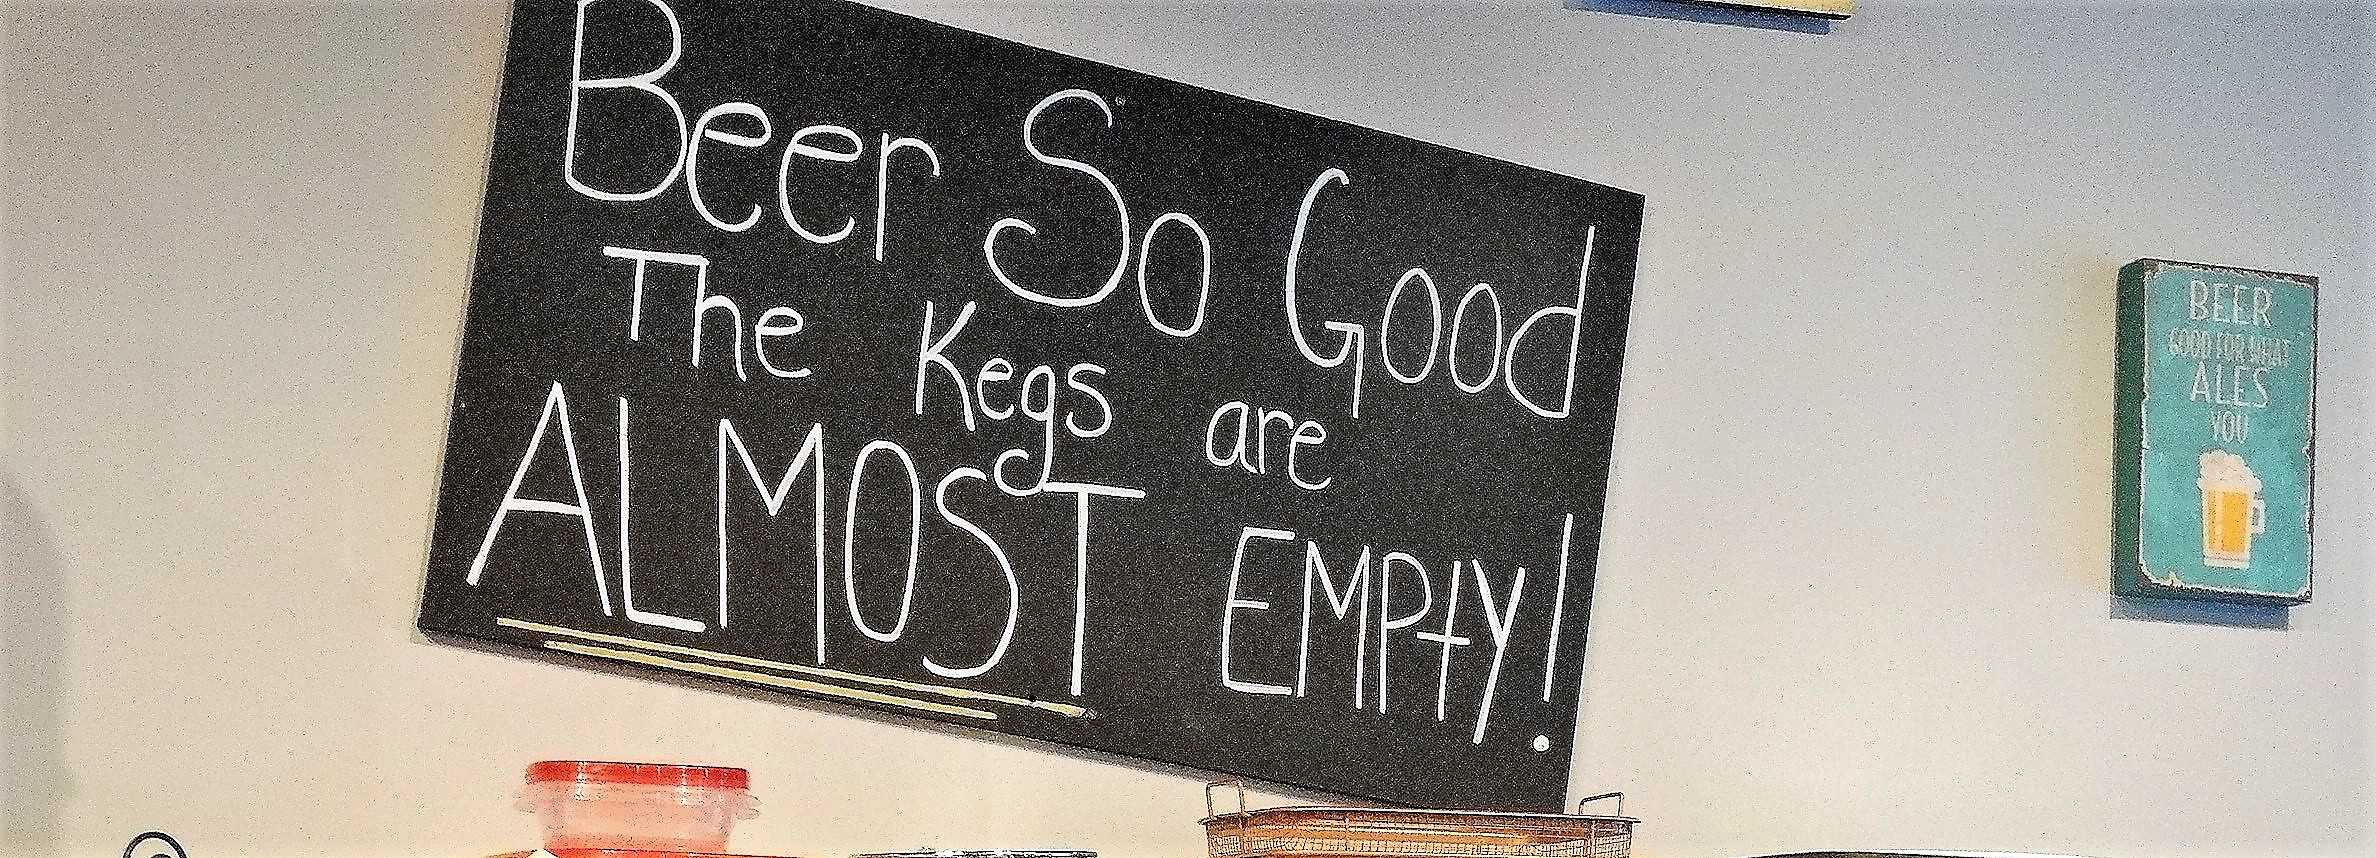 Beer So Good
The Kegs are
ALMOST EMPtY!
BEER
GOOD FOR WHAT
ALES
YOU